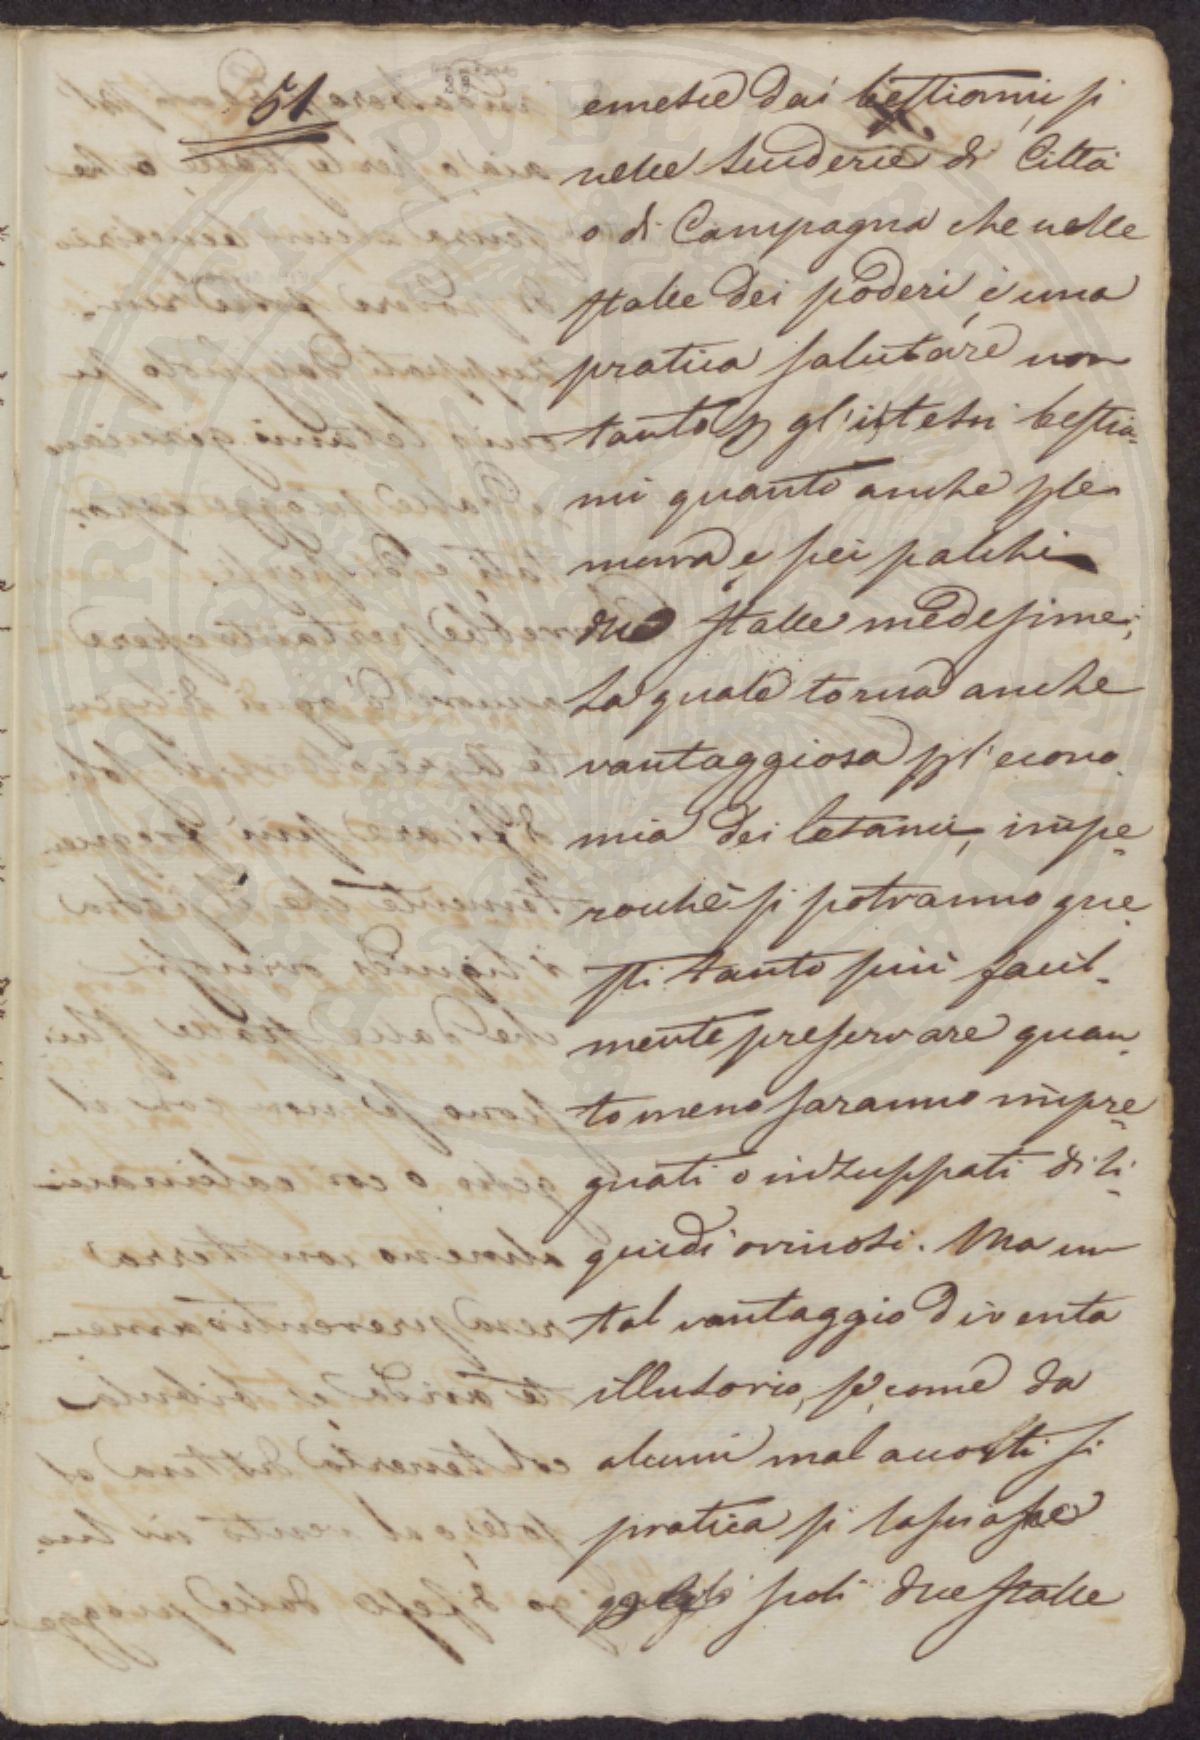 51
emesse dai bestiami, sì
nelle scuderie di Città
o di Campagna che nelle
stalle dei poderi è una
pratica salutare non
tanto p gl'istessi bestia-
mi quanto anche ple
mura e pei palchi
delle stalle medesime;
La quale torna anche
vantaggiosa pl'econo-
mia dei letami, impe-
rocchè si potranno que-
sti tanto più facil-
mente preservare quan-
to meno saranno impre-
gnati o inzuppati di li-
quidi orinosi. Ma un
tal vantaggio diventa
illusorio, se, come da
alcuni mal accorti si
pratica si lasciasse
scoli delle stalle